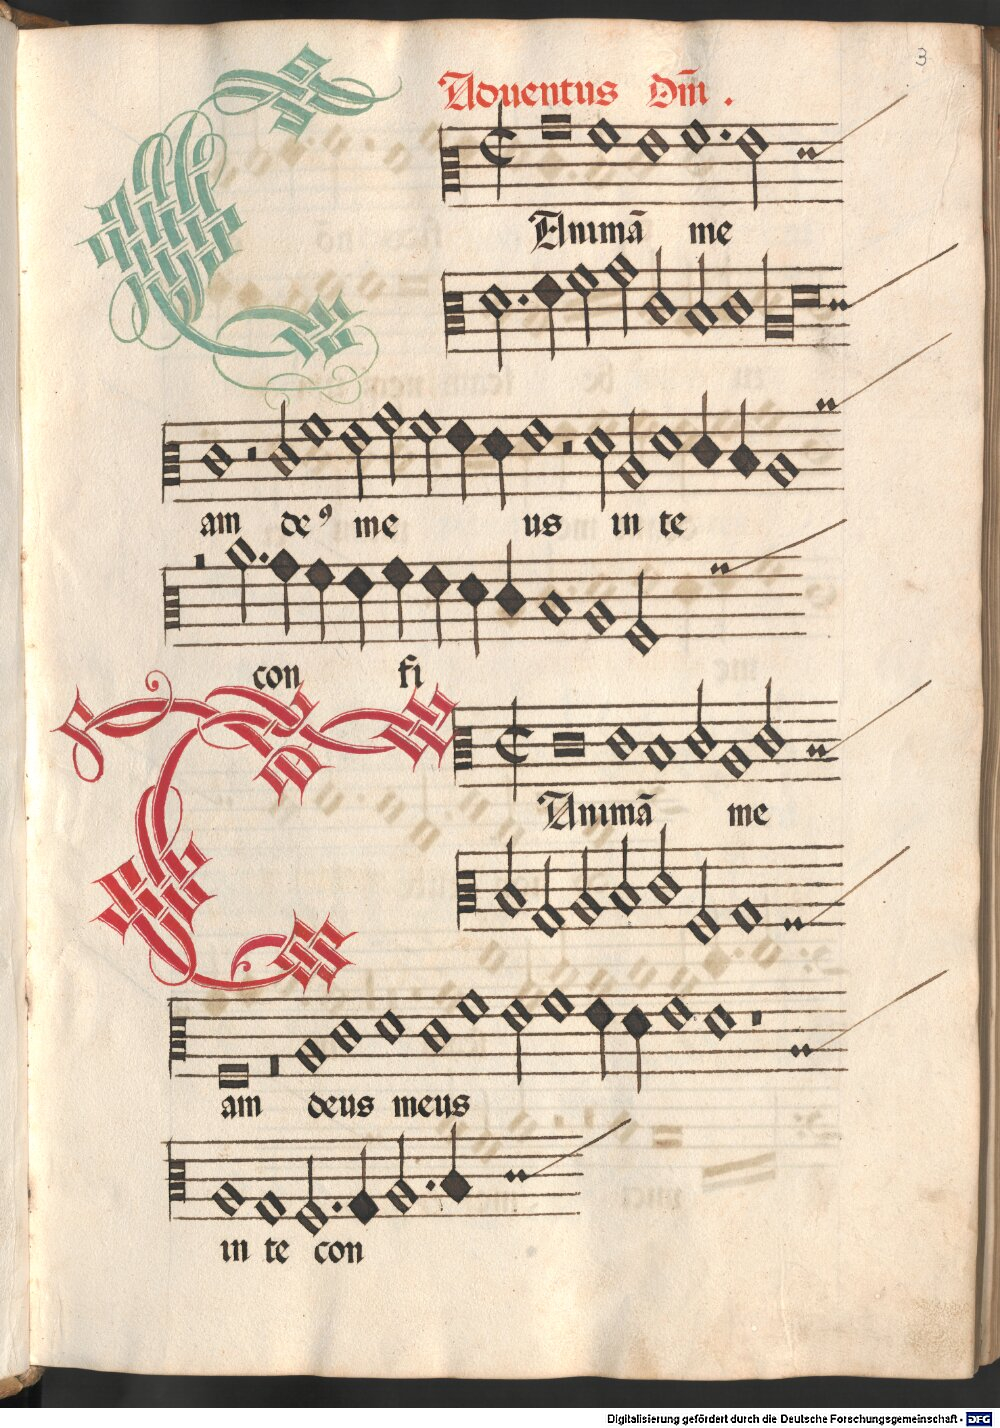 3
Aduentus Dm̄ .
Animā me
am de⁹ me us in te
con fi
Animā me
am deus meus
in te con
Digitalisierung gefördert durch die Deutsche Forschungsgemeinschaft - DFG